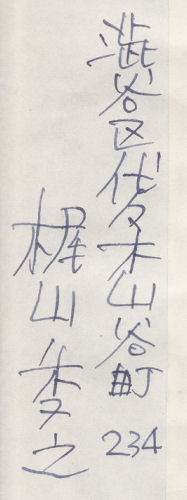 渋谷区代々木山谷町234
梶山季之